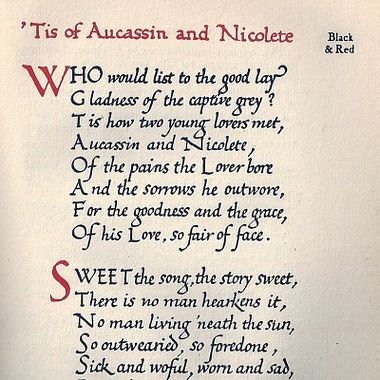 'Tis of Aucassin and Nicolete
Black
& Red
WHO would list to the good lay
Gladness of the captive grey?
Tis how two young lovers met,
Aucassin and Nicolete,
Of the pains the Lover bore
And the sorrows he outwore,
For the goodness and the grace,
Of his Love, so fair of face.
SWEET the song, the story sweet,
There is no man hearkens it,
No man living 'neath the sun,
So outwearied, so foredone,
Sick and woful, worn and sad,